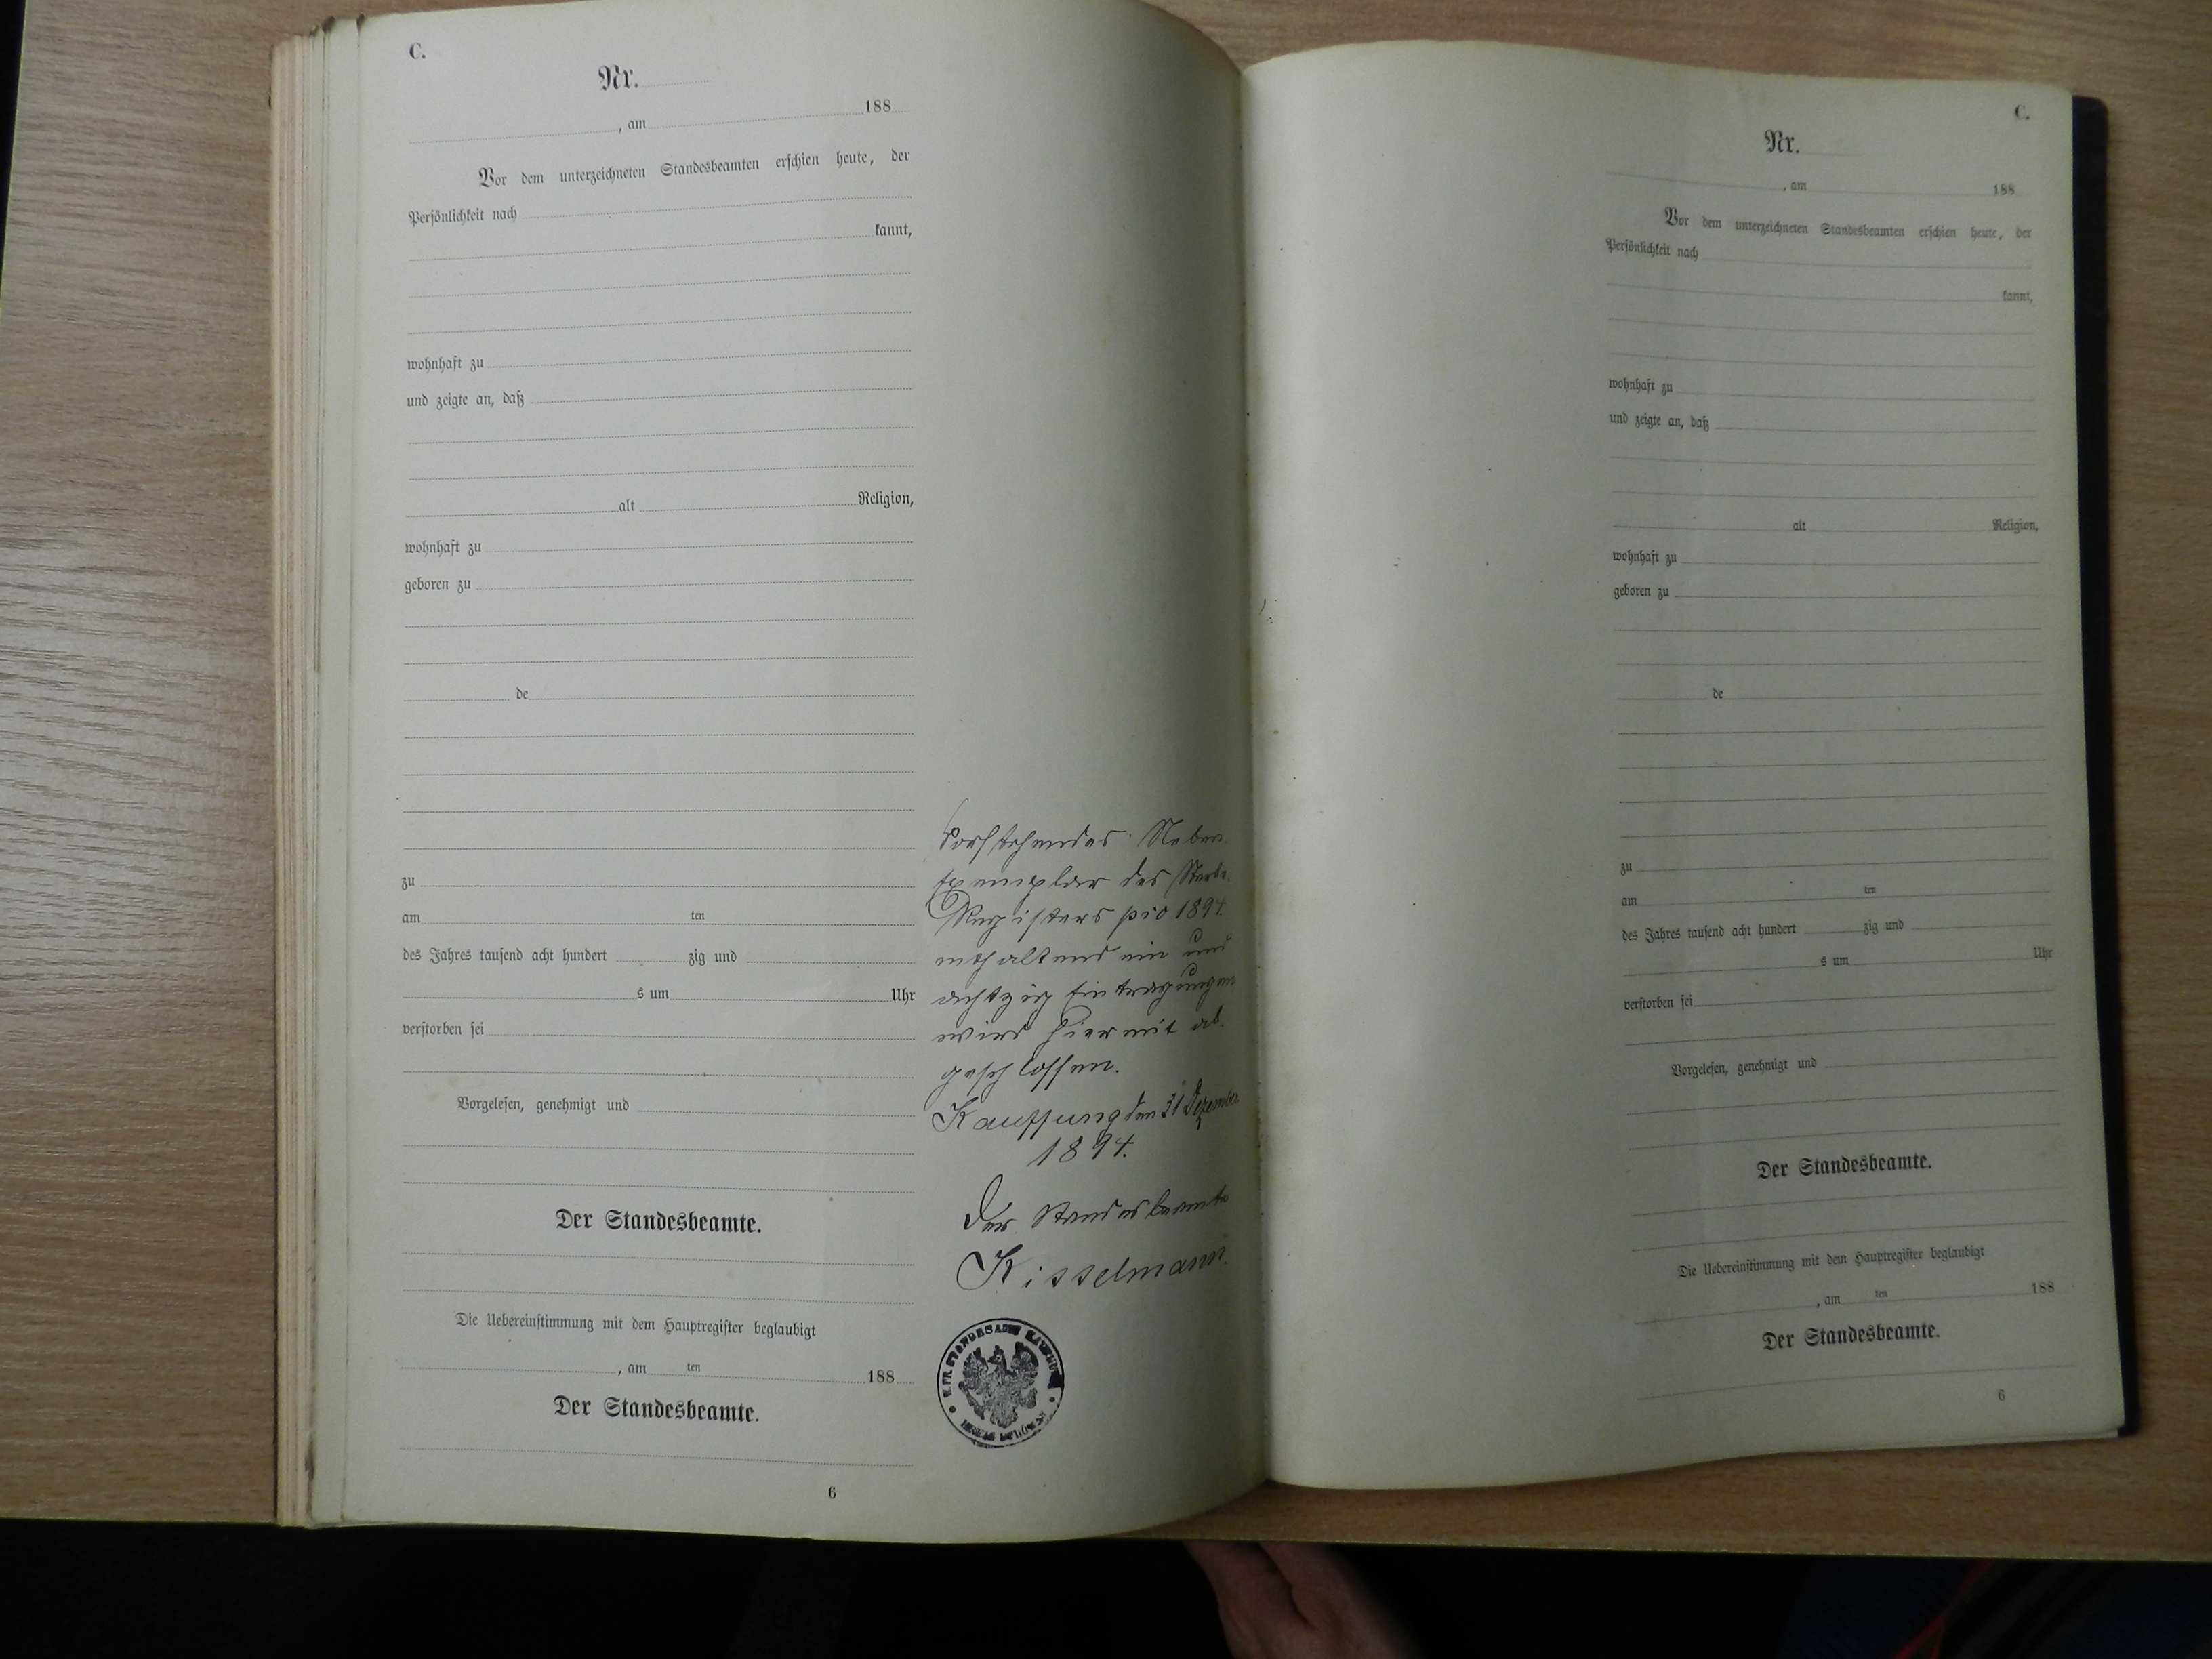 C.
Nr.
, am 188
Vor dem unterzeichneten Standesbeamten erschien heute, der
Persönlichkeit nach
kannt,
wohnhaft zu
und zeigte an, daß
alt Religion,
wohnhaft zu
geboren zu
de
zu
am ten
des Jahres tausend acht hundert zig und
s um Uhr
verstorben sei
Vorgelesen, genehmigt und
Der Standesbeamte.
Die Uebereinstimmung mit dem Hauptregister beglaubigt
, am ten 188
Der Standesbeamte.
6
Vorstehendes Neben
Exemplar des Sterbe
Registers pro 1894
enthaltend ein und
achtzig Eintragungen
wird hiermit ab
geschlossen.
Kauffung den 31 Dezember
1894.
Der Standesbeamte
Kisselmann
C.
Nr.
, am 188
Vor dem unterzeichneten Standesbeamten erschien heute, der
Persönlichkeit nach
kannt,
wohnhaft zu
und zeigte an, daß
alt Religion,
wohnhaft zu
geboren zu
de
zu
am ten
des Jahres tausend acht hundert zig und
s um Uhr
verstorben sei
Vorgelesen, genehmigt und
Der Standesbeamte.
Die Uebereinstimmung mit dem Hauptregister beglaubigt
, am ten 188
Der Standesbeamte.
6